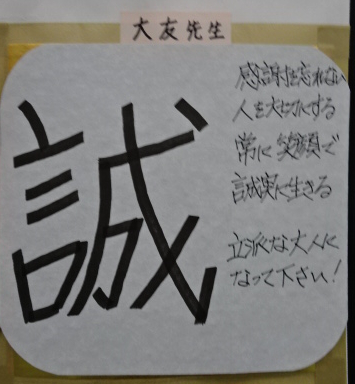 大友先生
誠
感謝を忘れない
人を大切にする
常に笑顔で
誠実に生きる
立派な大人に
なって下さい!